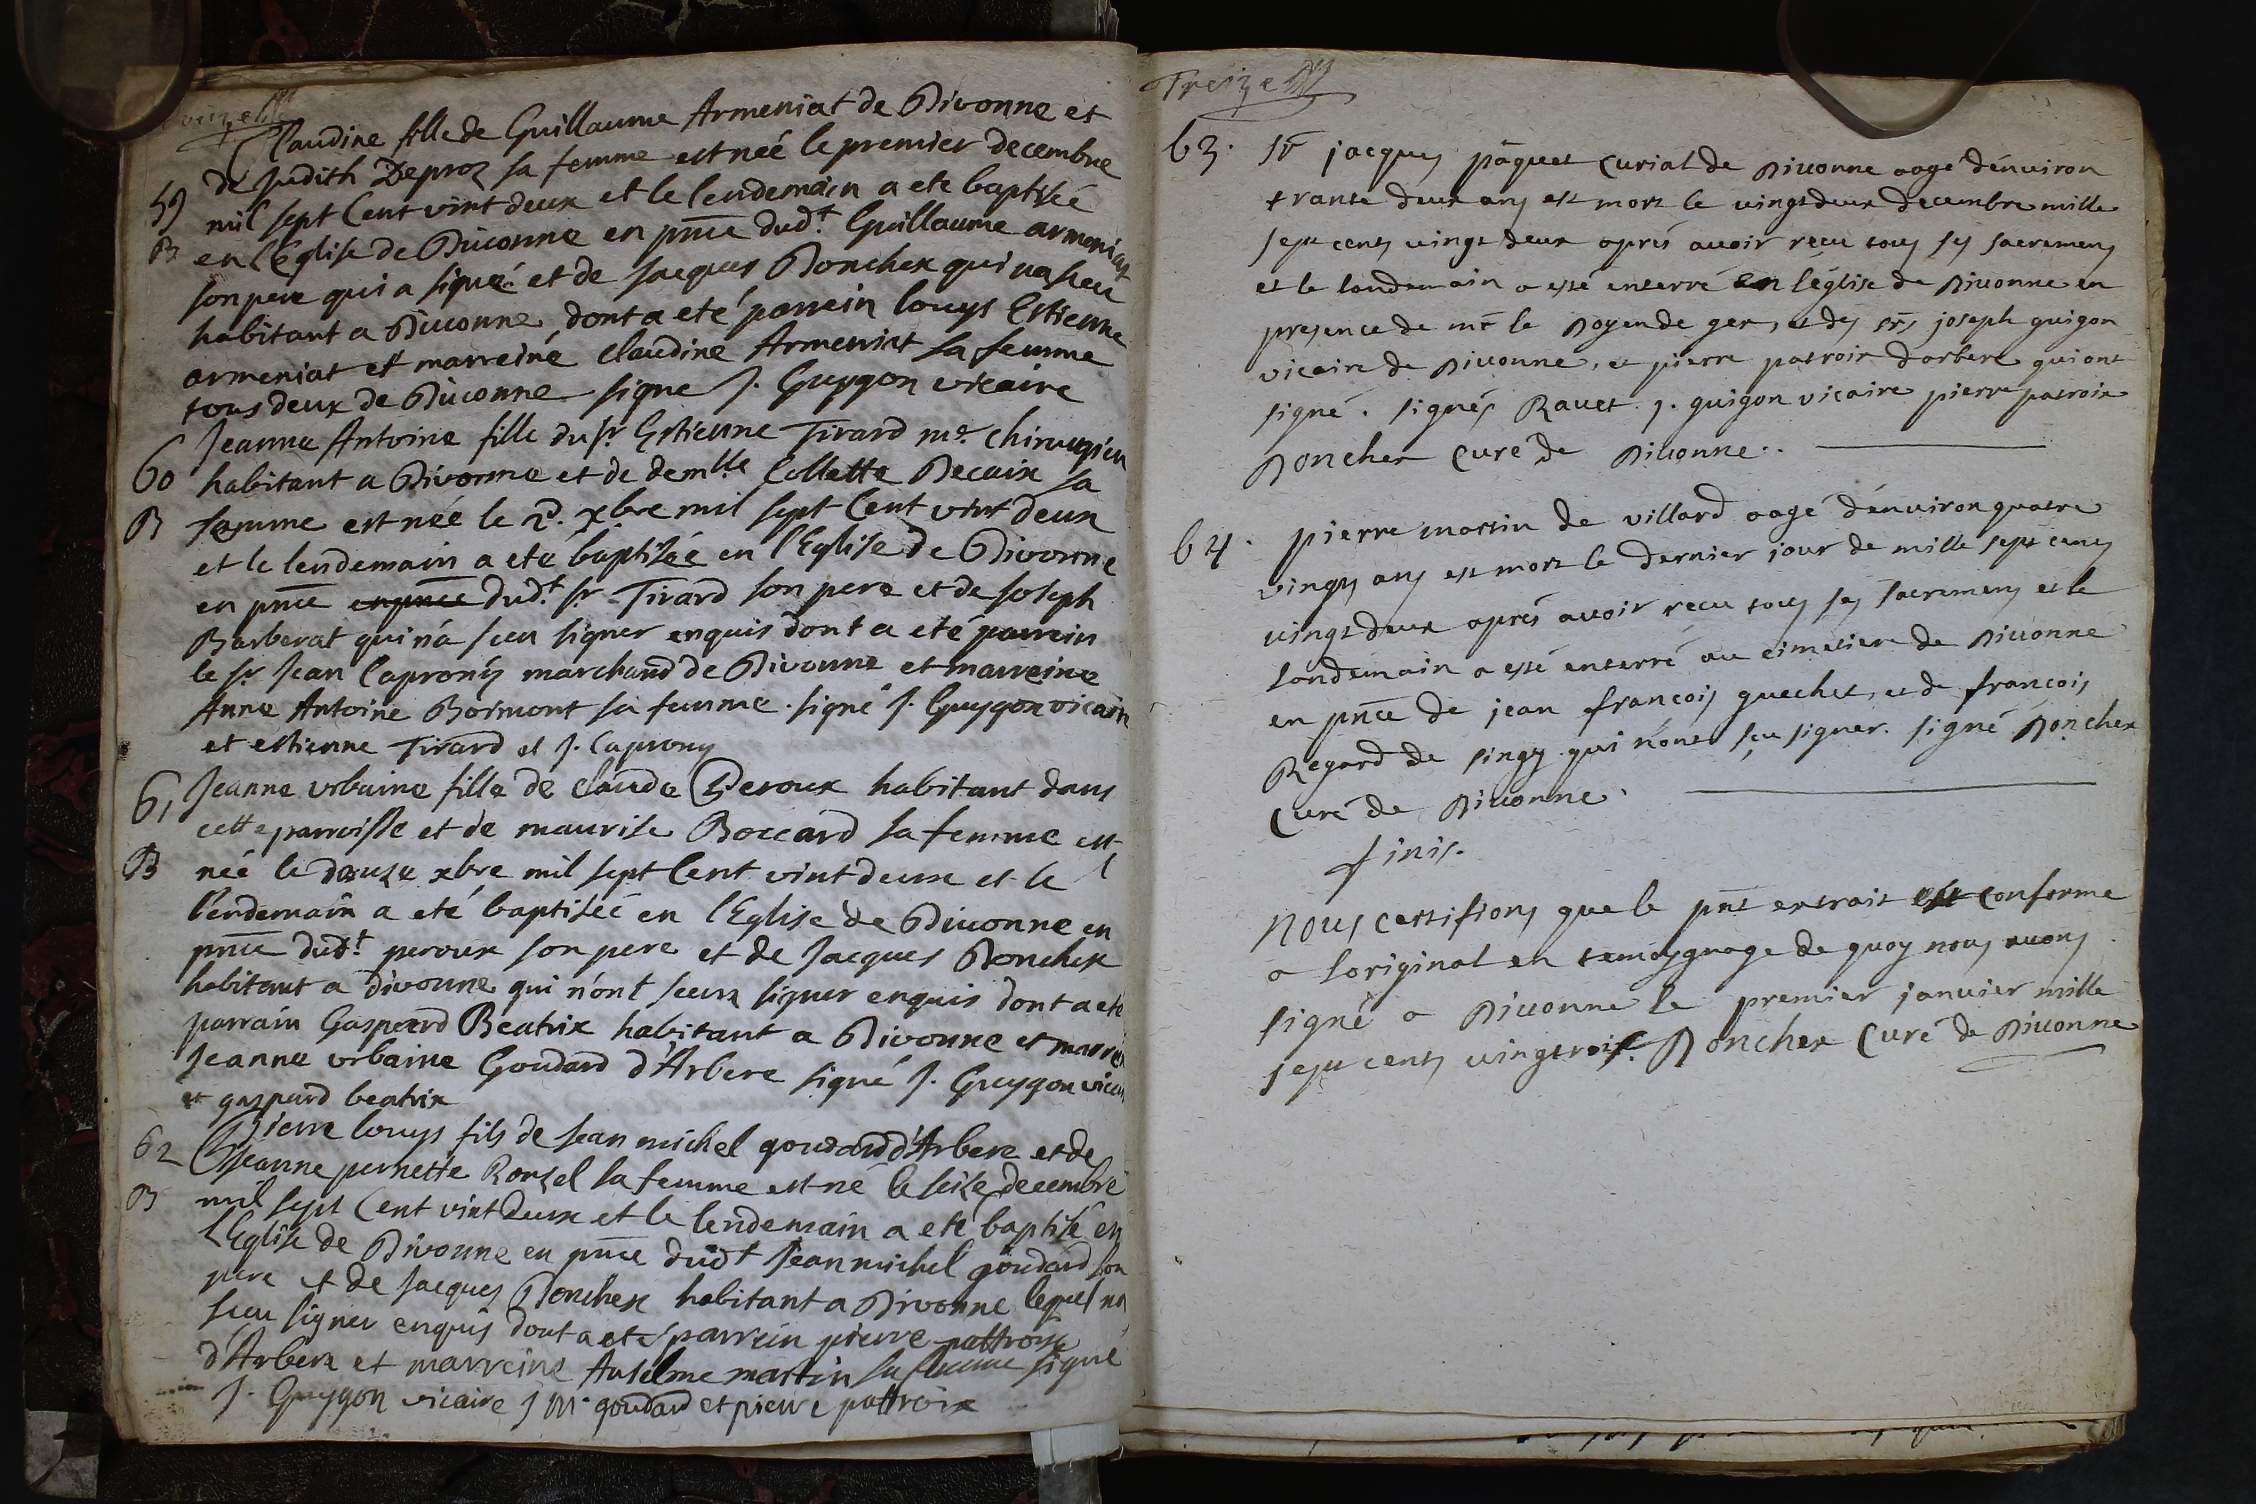 Claudine fille de Guillaume Armeniat de Divonne et
de Judith Deproz sa femme est née le premier decembre
59 mil sept Cent vint deux et le lendemain a ete baptisée
B en l'Eglise de Divonne en pnce dudt. Guillaume armeniat
son pere qui a signé et de Jacques Poncher qui na sceu
habitant a Divonne dont a eté parrein louys Estienne
armeniat et marreine Claudine Armeniat sa femme
tous deux de Divonne signe J. Guygon vicaire
Jeanne Antoine fille du sr. Estienne Tirard me. chirurgien
60 habitant a Divonne et de demlle Collette Decaix sa
B femme est née le 2d. xbre mil sept Cent vint deux
et le lendemain a eté baptisée en l'Eglise de Divonne
en pnce en pnce dudt. sr. Tirard son pere et de Joseph
Barberat qui n'a sceu signer enquis dont a eté parrein
le sr. Jean Caprony marchand de Divonne et marreine
Anne Antoine Bormont sa femme. signé J. Guygon vicaire
et estienne Tirard et J. Caprony
61 Jeanne urbaine fille de claude Peroux habitant dans
cette parroisse et de maurise Boccard sa femme est
B née le douze xbre mil sept Cent vint deux et le
lendemain a eté baptisée en l'Eglise de Divonne en
pnce dudt. peroux son pere et de Jacques Poncher
habitant a divonne qui n'ont sceux signer enquis dont a eté
parrain Gaspard Beatrix habitant a Divonne et marrei
Jeanne urbaine Goudard d'Arbere signé J. Guygon vicai
et gaspard beatrix
Pierre louys fils de Jean michel goudard d'Arbere et de
62 Jeanne pernette Ronzel sa femme est né le seize decembre
B mil sept Cent vint deux et le lendemain a eté baptisé en
l'Eglise de Divonne en pnce dudt Jean michel goudard son
pere et de Jacques Poncher habitant a Divonne lequel na
sceu signer enquis dont a eté parrein pierre pattroix
d'Arbere et marreine Anselme martin sa femme signé
J. Guygon vicaire J m. goudard et pierre pattroix
Treize
63. Sr jacques pâquet Curial de Divonne aagé d'environ
trante deux ans est mort le vingtdeux decembre mille
sept cents vingt deux aprés avoir reçu tous ses sacremens
et le landemain a esté enterré en l'église de Divonne en
presence de mr le Doyen de gex, et des srs joseph guigon
vicaire de Divonne, et pierre patroix d'arbere qui ont
signé. signés Ravet. j. guigon vicaire pierre patroix
Poncher Curé de Divonne.
64. pierre martin de villard aagé d'environ quatre
vingts ans est mort le dernier jour de mille sept cents
vingt deux aprés avoir reçu tous ses sacremens et le
landemain a esté enterré au cimetiere de Divonne
en pnce de jean françois guechet, et de françois
Regard de singy qui n'ont sçu signer. signé Poncher
Curé de Divonne.
finis.
Nous certifions que le pnt extrait est conforme
a loriginal en temoygnage de quoy nous avons
signé a Divonne le premier janvier mille
sept cents vingtrois. Poncher Curé de Divonne